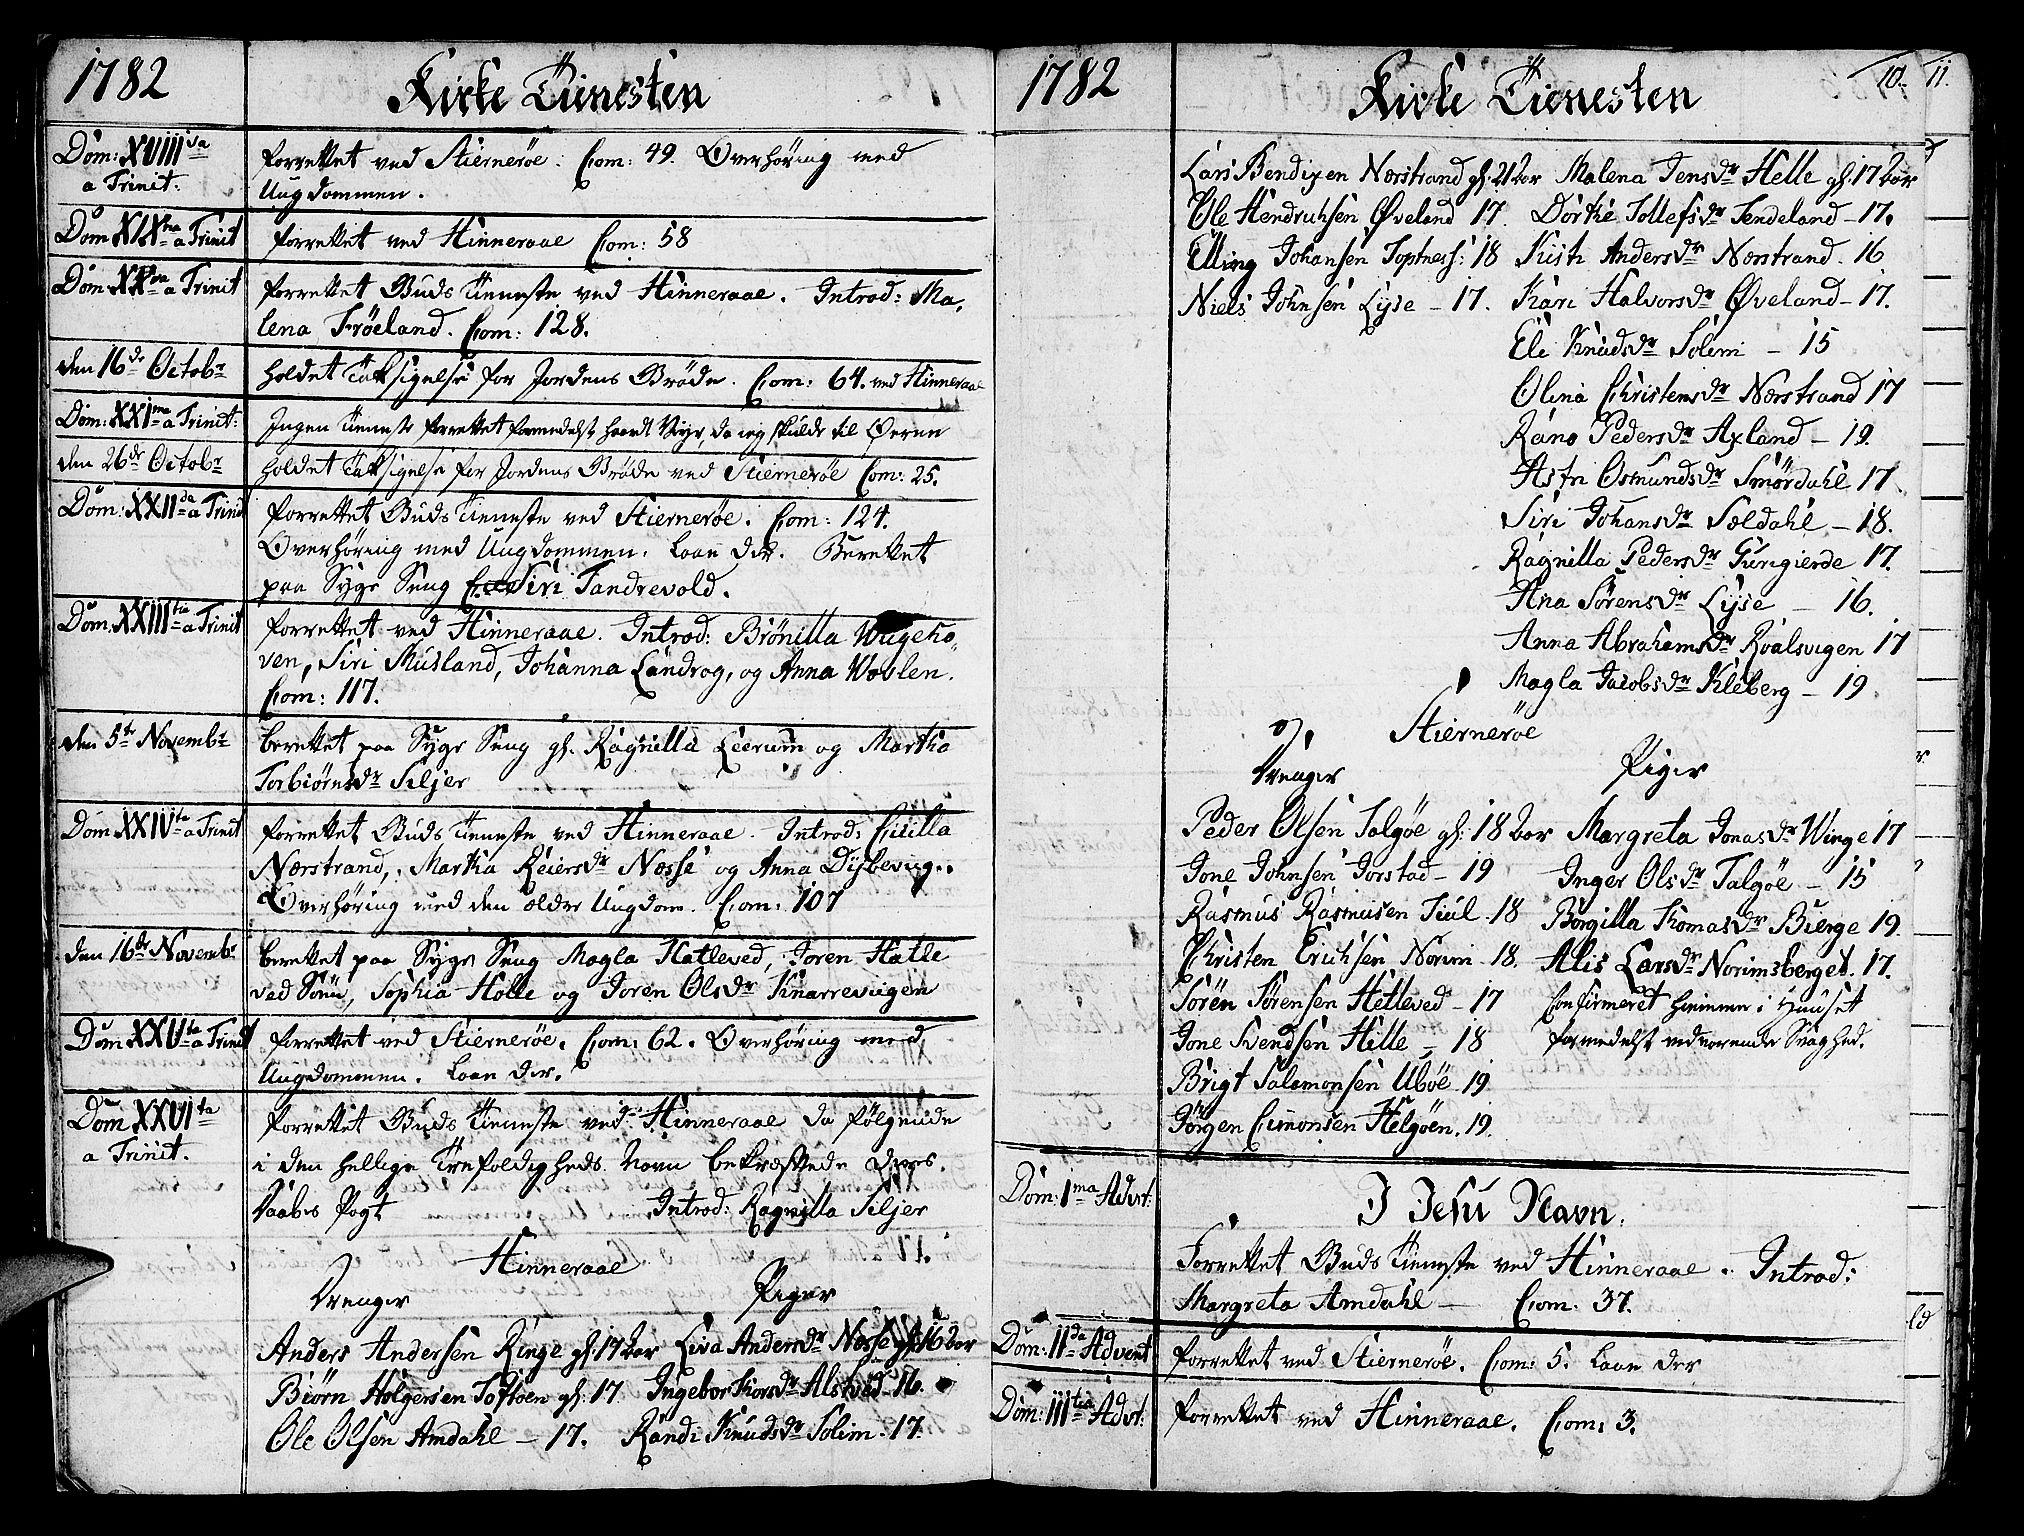 1782
Kirke Tienesten
Dom: XVIII va
a Trinit:
forrettet ved Stiernerøe. Com: 49. Overhøring med
Ungdommen.
Dom XIX na a Trinit
forrettet ved Hinneraae Com: 58
Dom XX ma a Trinit
forrettet Guds Tieneste ved Hinneraae. Introd: Ma,
lena Frøeland. Com: 128.
den 16de Octobr
holdet Taksigelse for Jordens Grøde. Com: 64. ved Hinneraae
Dom: XXI ma a Trinit:
Ingen Tieneste forrettet formedelst haardt Veyr, da ieg skulde til Øerne
den 26de Octobr
holdet Taksigelse for Jordens Grøde ved Stiernerøe Com: 25.
Dom: XXII da a Trinit
forrettet Guds Tieneste ved Stiernerøe. Com: 124.
Overhøring med Ungdommen. Laae der. Berettet
paa Syge Seng Siri Tandrevold.
Dom. XXIII tia a Trinit
forrettet ved Hinneraae. Introd: Brönilla Wugeho,,
ven, Siri Musland, Johanna Landrog, og Anna Wovlen.
Com: 117.
den 5te Novembr
berettet paa Syge Seng gl. Ragnilla Leerum og Martha
Torbiørnsdr Siljer
Dom XXIV ta a Trinit
forrettet Guds Tieneste ved Hinneraae. Introd: Cicilla
Nærstrand, Martha Reiersdr Næsse og Anna Dysbevug..
Overhøring med den eldre Ungdom. Com: 107
den 16de Novembr
berettet paa Syge Seng Magla Hatleved, Joren Hatle
ved Sønn, Sophia Holle og Joren Olsdr Knarrevugen
Dom XXV ta a Trinit
forrettet ved Stiernerøe. Com: 62. Overhøring med
Ungdommen. Laae der.
Dom XXVI ta
a Trinit.
forrettet Guds Tieneste ved Hinneraae da følgende
i den hellige Trefoldigheds Navn bekræftede deres
Daabes Pagt Introd: Ragnilla Siljer
Hinneraae
Drenger Piger
Anders Andersen Ringe gl. 17 Aar Liva Andersdr Næsse gl. 16 Aar
Biørn Holgersen Toftøen gl. 17 Ingebor Thorsdr Alsteved 16.
Ole Olsen Amdahl – 17. Randi Knudsdr Solim. 17.
1782
Kirke Tienesten
10. 11.
Lars Bendixen Nærstrand gl. 21 Aar Malena Jensdr Helle gl. 17 Aar
Ole Hendrichsen Øveland 17. Dorthe Tollefsdr Tendeland – 17.
Elling Johansen Toptness: 18 Kisti Andersdr Nærstrand. 16
Niels Johnsen Lyse – 17. Kari Halvorsdr Øveland – 17.
Eli Knudsdr Solem – 15
Olena Christensdr Nærstrand 17
Rano Pedersdr Axland – 19.
Astri Osmundsdr Smørdahl 17
Siri Johansdr Sældahl – 18.
Ragnilla Pedersdr Tungierde 17.
Ana Sörensdr Lyse – 16.
Anna Abrahamsdr Roalsvugen 17
Magla Jacobsdr Kleberg – 19
Stiernerøe
Drenger Piger
Peder Olsen Talgøe gl: 18 Aar Margreta Jonasdr Winge 17
Jone Johnsen Jorstad – 19 Inger Olsdr Talgöe – 15
Rasmus Rasmusen Tiul. 18 Borgilla Thomasdr Bierge 19.
Christen Erichsen Norim – 18. Alis Larsdr Norimsberget. 17.
Sörèn Sörensen Hetleved – 17 Confirmeret hiemme i Huuset
Jone Svendsen Helle – 18 formedelst vedvarende Svaghed.
Brigt Salamonsen Ubøe 19
Jörgen Cimonsen Helgöen. 19.
Dom: I ma Advt:
I Jesu Navn.
Forrettet Guds Tieneste ved Hinneraae. Introd:
Margreta Amdahl – Com. 37.
Dom: II da Advent
forrettet ved Stiernerøe. Com: 5. Laae der
Dom: III tia Advt:
forrettet ved Hinneraae. Com: 3.